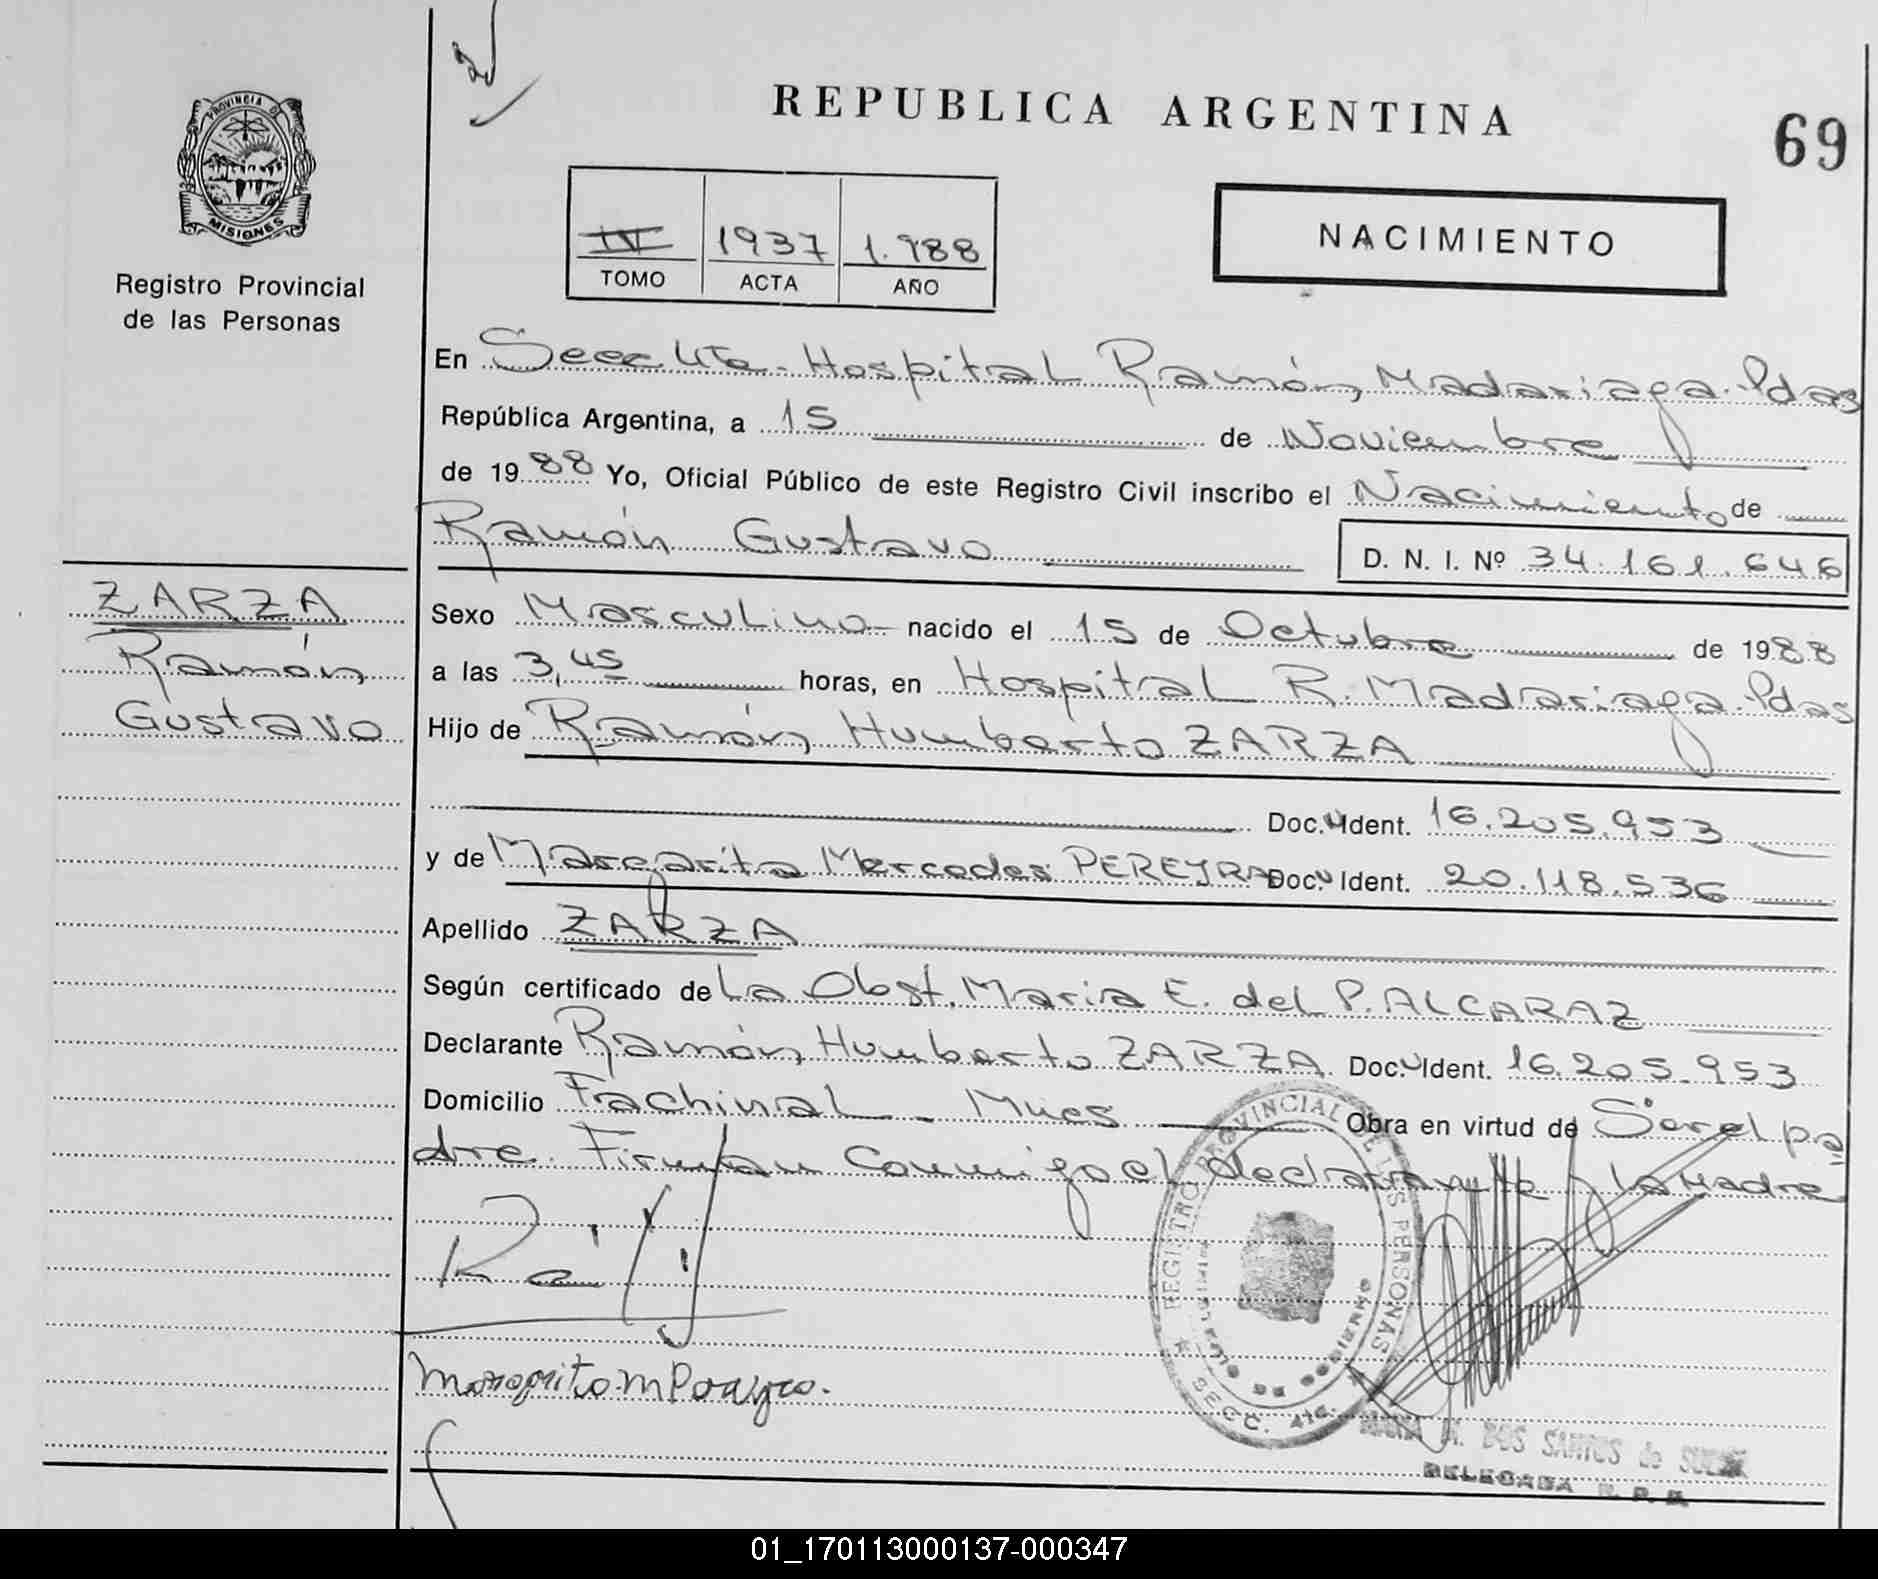 REPUBLICA ARGENTINA
69
PROVINCIA DE
MISIONES
Registro Provincial
de las Personas
IV 1937 1.988
TOMO ACTA AÑO
NACIMIENTO
En Secc 4ta - Hospital Ramón Madariaga. Pdas
República Argentina, a 15 de Noviembre
de 1988 Yo, Oficial Público de este Registro Civil inscribo el Nacimiento de
Ramón Gustavo D. N. I. Nº 34.161.646
ZARZA
Ramón
Gustavo
Sexo Masculino nacido el 15 de Octubre de 1988
a las 3,45 horas, en Hospital R. Madariaga. Pdas
Hijo de Ramón Humberto ZARZA
Doc. Ident. 16.205.953
y de Margarita Mercedes PEREYRA Doc. Ident. 20.118.536
Apellido ZARZA
Según certificado de La Obst. Maria E. del P. ALCARAZ
Declarante Ramón Humberto ZARZA Doc. Ident. 16.205.953
Domicilio Fachinal - Mnes Obra en virtud de Ser el pa
dre. Firman Conmigo el declarante y la Madre
REGISTRO PROVINCIAL DE LAS PERSONAS
SECC. 4ta.
DOS SANTOS de
DELEGADA R. P. P.
01_170113000137-000347